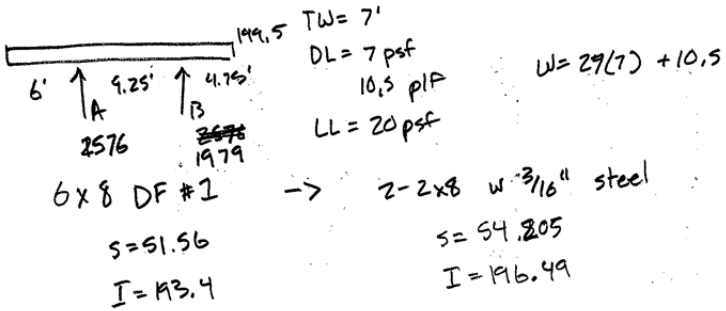 199.5
TW= 7'
DL = 7 psf
10.5 plf
LL = 20 psf
W= 29(7) +10.5
6' 9.25' 4.75'
A B
2576
1979
6x8 DF #1 -> 2-2x8 w 3/16" steel
S=51.56
I=193.4
S= 54.205
I=196.49